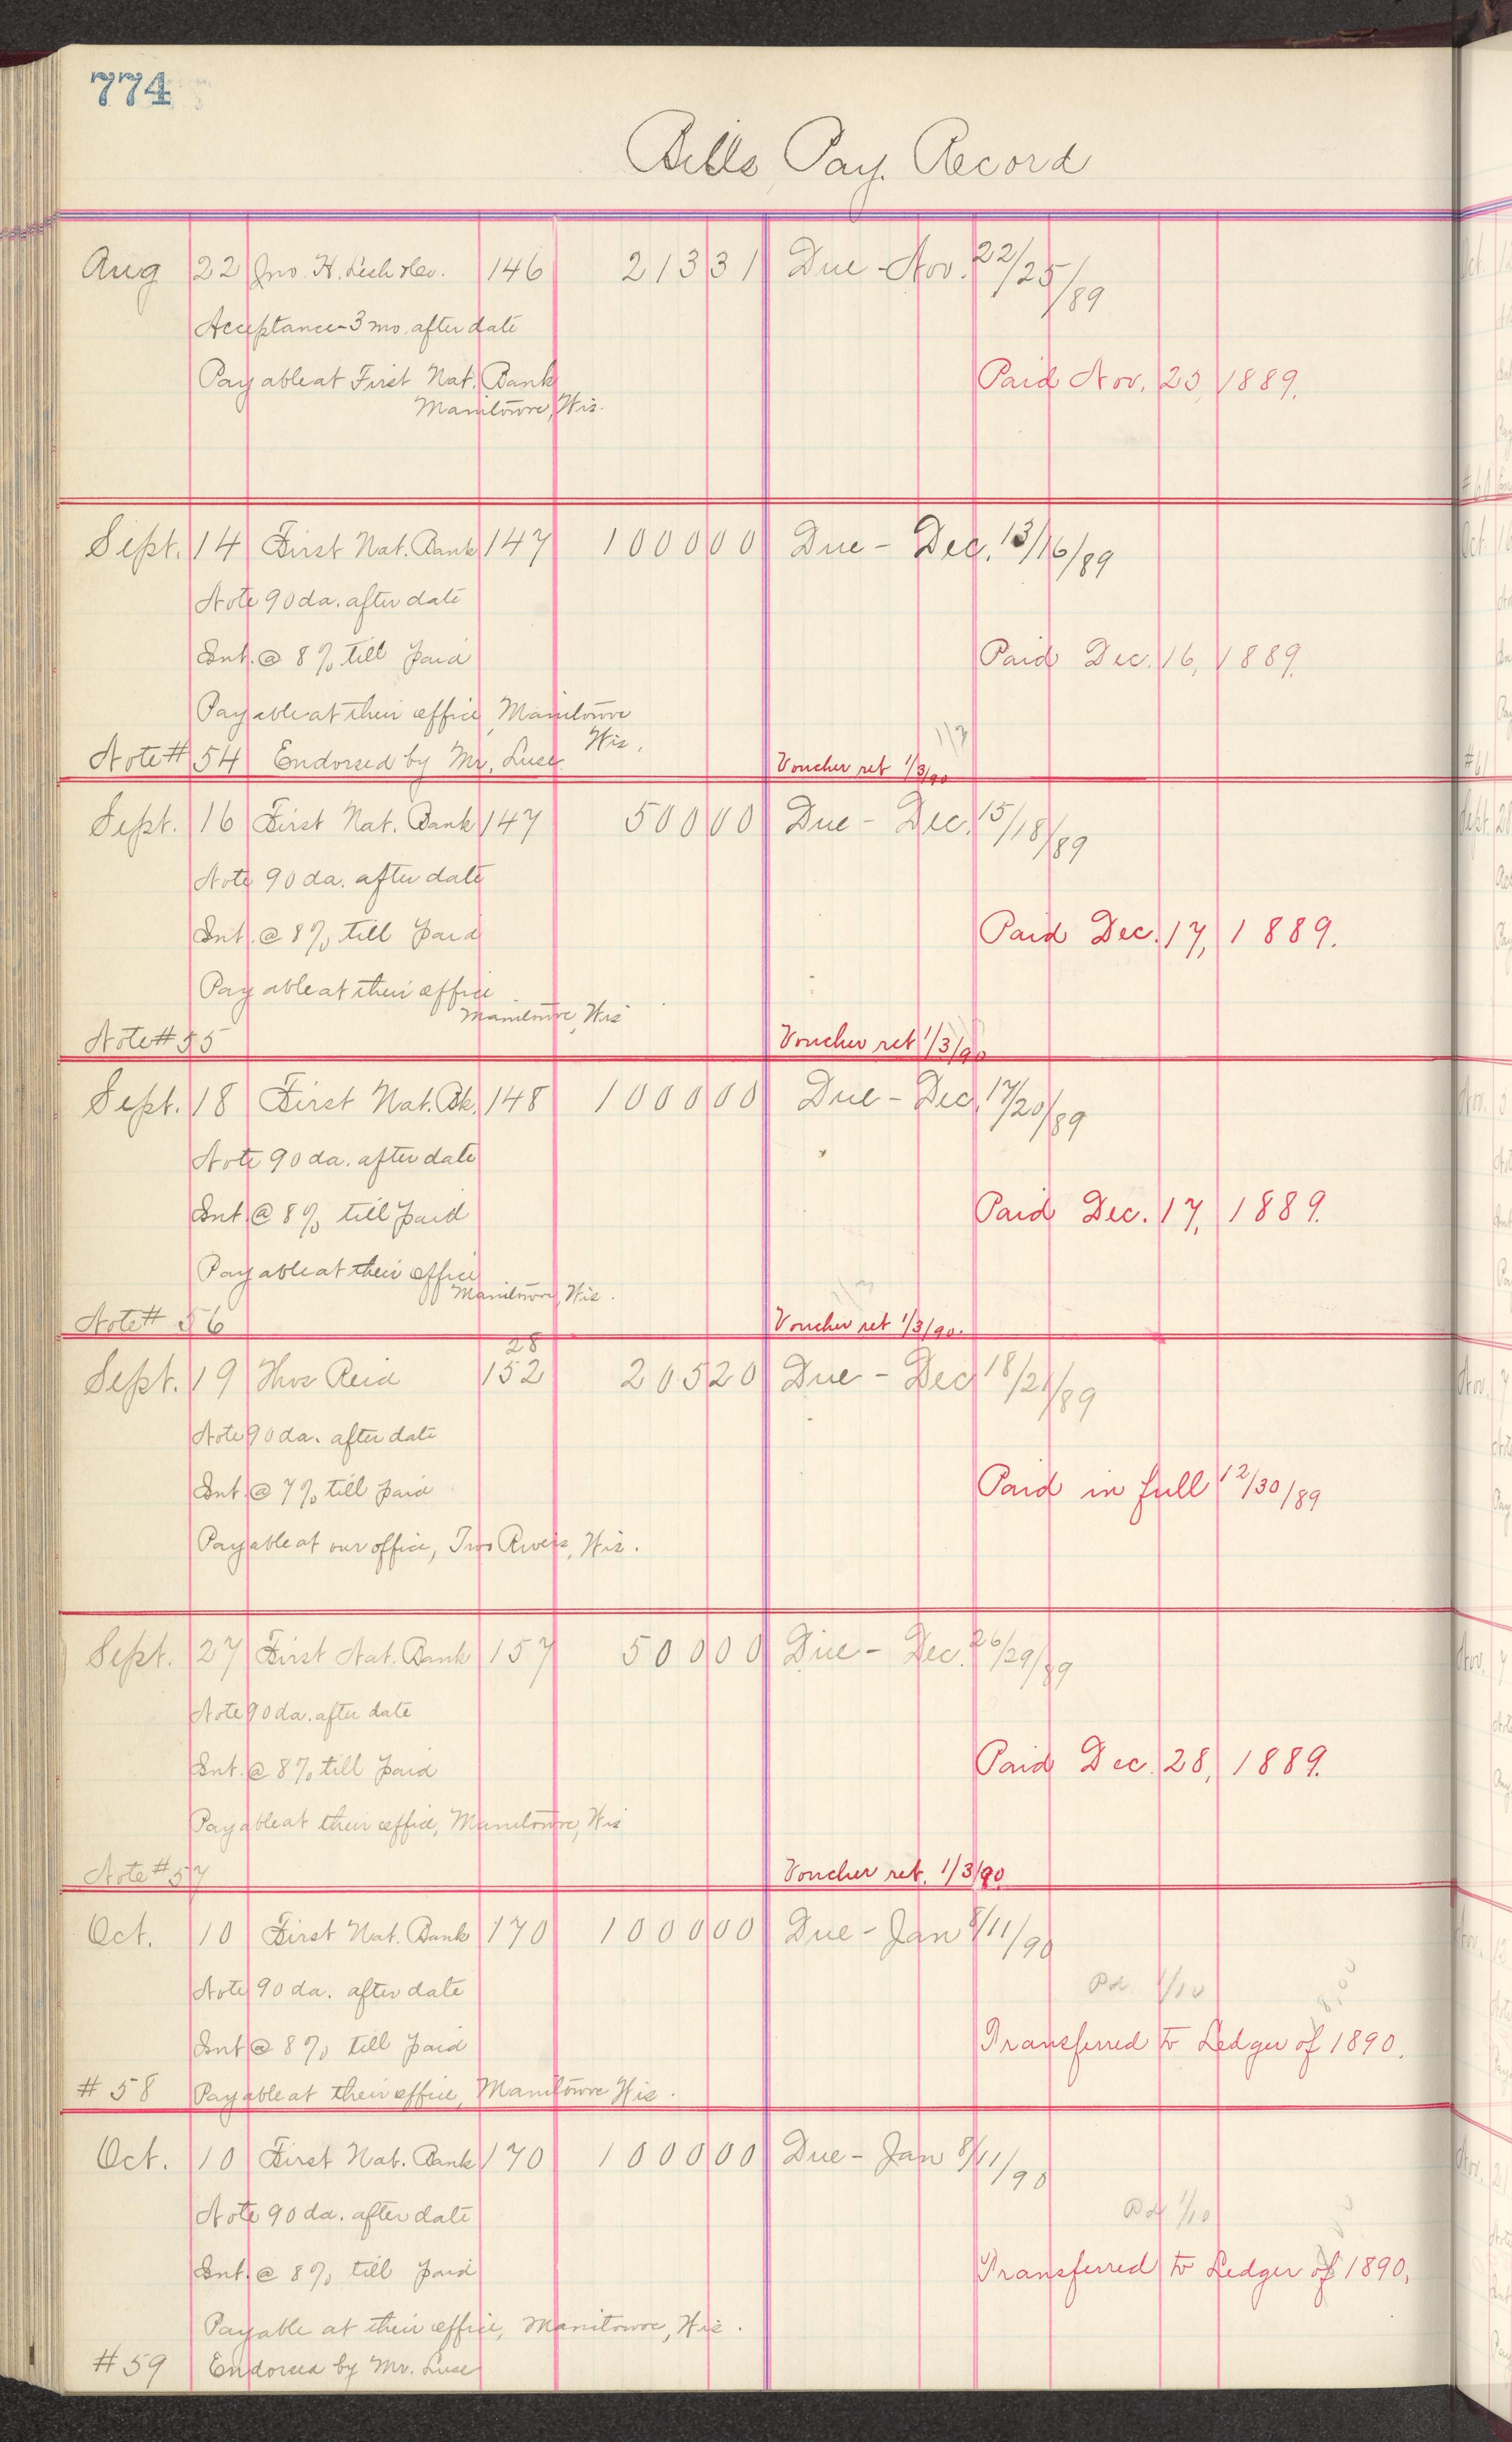 774
Bills Pay. Record
Aug 22 Jno. H. 146 213 31 Due - Nov. 22/25/89
Acceptance - 3 mo. after date
Payable at First Nat. Bank Paid Nov. 1889.
Manitowoc, Wis.
Sept. 14 First Nat. Bank 147 1000 00 Due - Dec. 13/16/89
Note 90 da. after date
Int. @ 8% till paid Paid Dec. 16, 1889.
Payable at their office, Manitowoc
Wis.
Note # 54 Endorsed by Mr. Luse Voucher ret 1/3/90
Sept. 16 First Nat. Bank 147 500 00 Due - Dec. 15/18/89
Note 90 da. after date
Int. @ 8% till paid Paid Dec. 17, 1889.
Payable at their office
Manitowoc, Wis
Note # 55 Voucher ret 1/3/90
Sept. 18 First Nat. Bk. 148 1000 00 Due - Dec. 17/20/89
Note 90 da. after date
Int. @ 8% till paid Paid Dec. 17, 1889.
Payable at their office
Manitowoc, Wis.
Note # 56 Voucher ret 1/3/90.
28
Sept. 19 Thos Reid 152 205 20 Due - Dec 18/21/89
Note 90 da. after date
Int. @ 7% till paid Paid in full 12/30/89
Payable at our office, Two Rivers, Wis.
Sept. 27 First Nat. Bank 157 500 00 Due - Dec. 26/29/89
Note 90 da. after date
Int. @ 8% till paid Paid Dec. 28, 1889.
Payable at their office, Manitowoc, Wis
Note # 57 Voucher ret. 1/3/90
Oct. 10 First Nat. Bank 170 1000 00 Due - Jan 8/11/90
Note 90 da. after date Pd. 1/10
Int @ 8% till paid Transferred to Ledger of 1890.
# 58 Payable at their office, Manitowoc Wis.
Oct. 10 First Nat. Bank 170 1000 00 Due - Jan 8/11/90
Note 90 da. after date Pd 1/10
Int. @ 8% till paid Transferred to Ledger of 1890.
Payable at their office, Manitowoc, Wis.
# 59 Endorsed by Mr. Luse